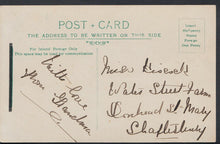 POST CARD
THE ADDRESS TO BE WRITTEN ON THIS SIDE
For Inland Postage Only
This space may be used for communication
Inland
Half-penny
Stamp
Foreign
One Penny
With love
from
Grandma
Miss Hiscock
Water Street Farm
Donhead St Mary
Shaftesbury